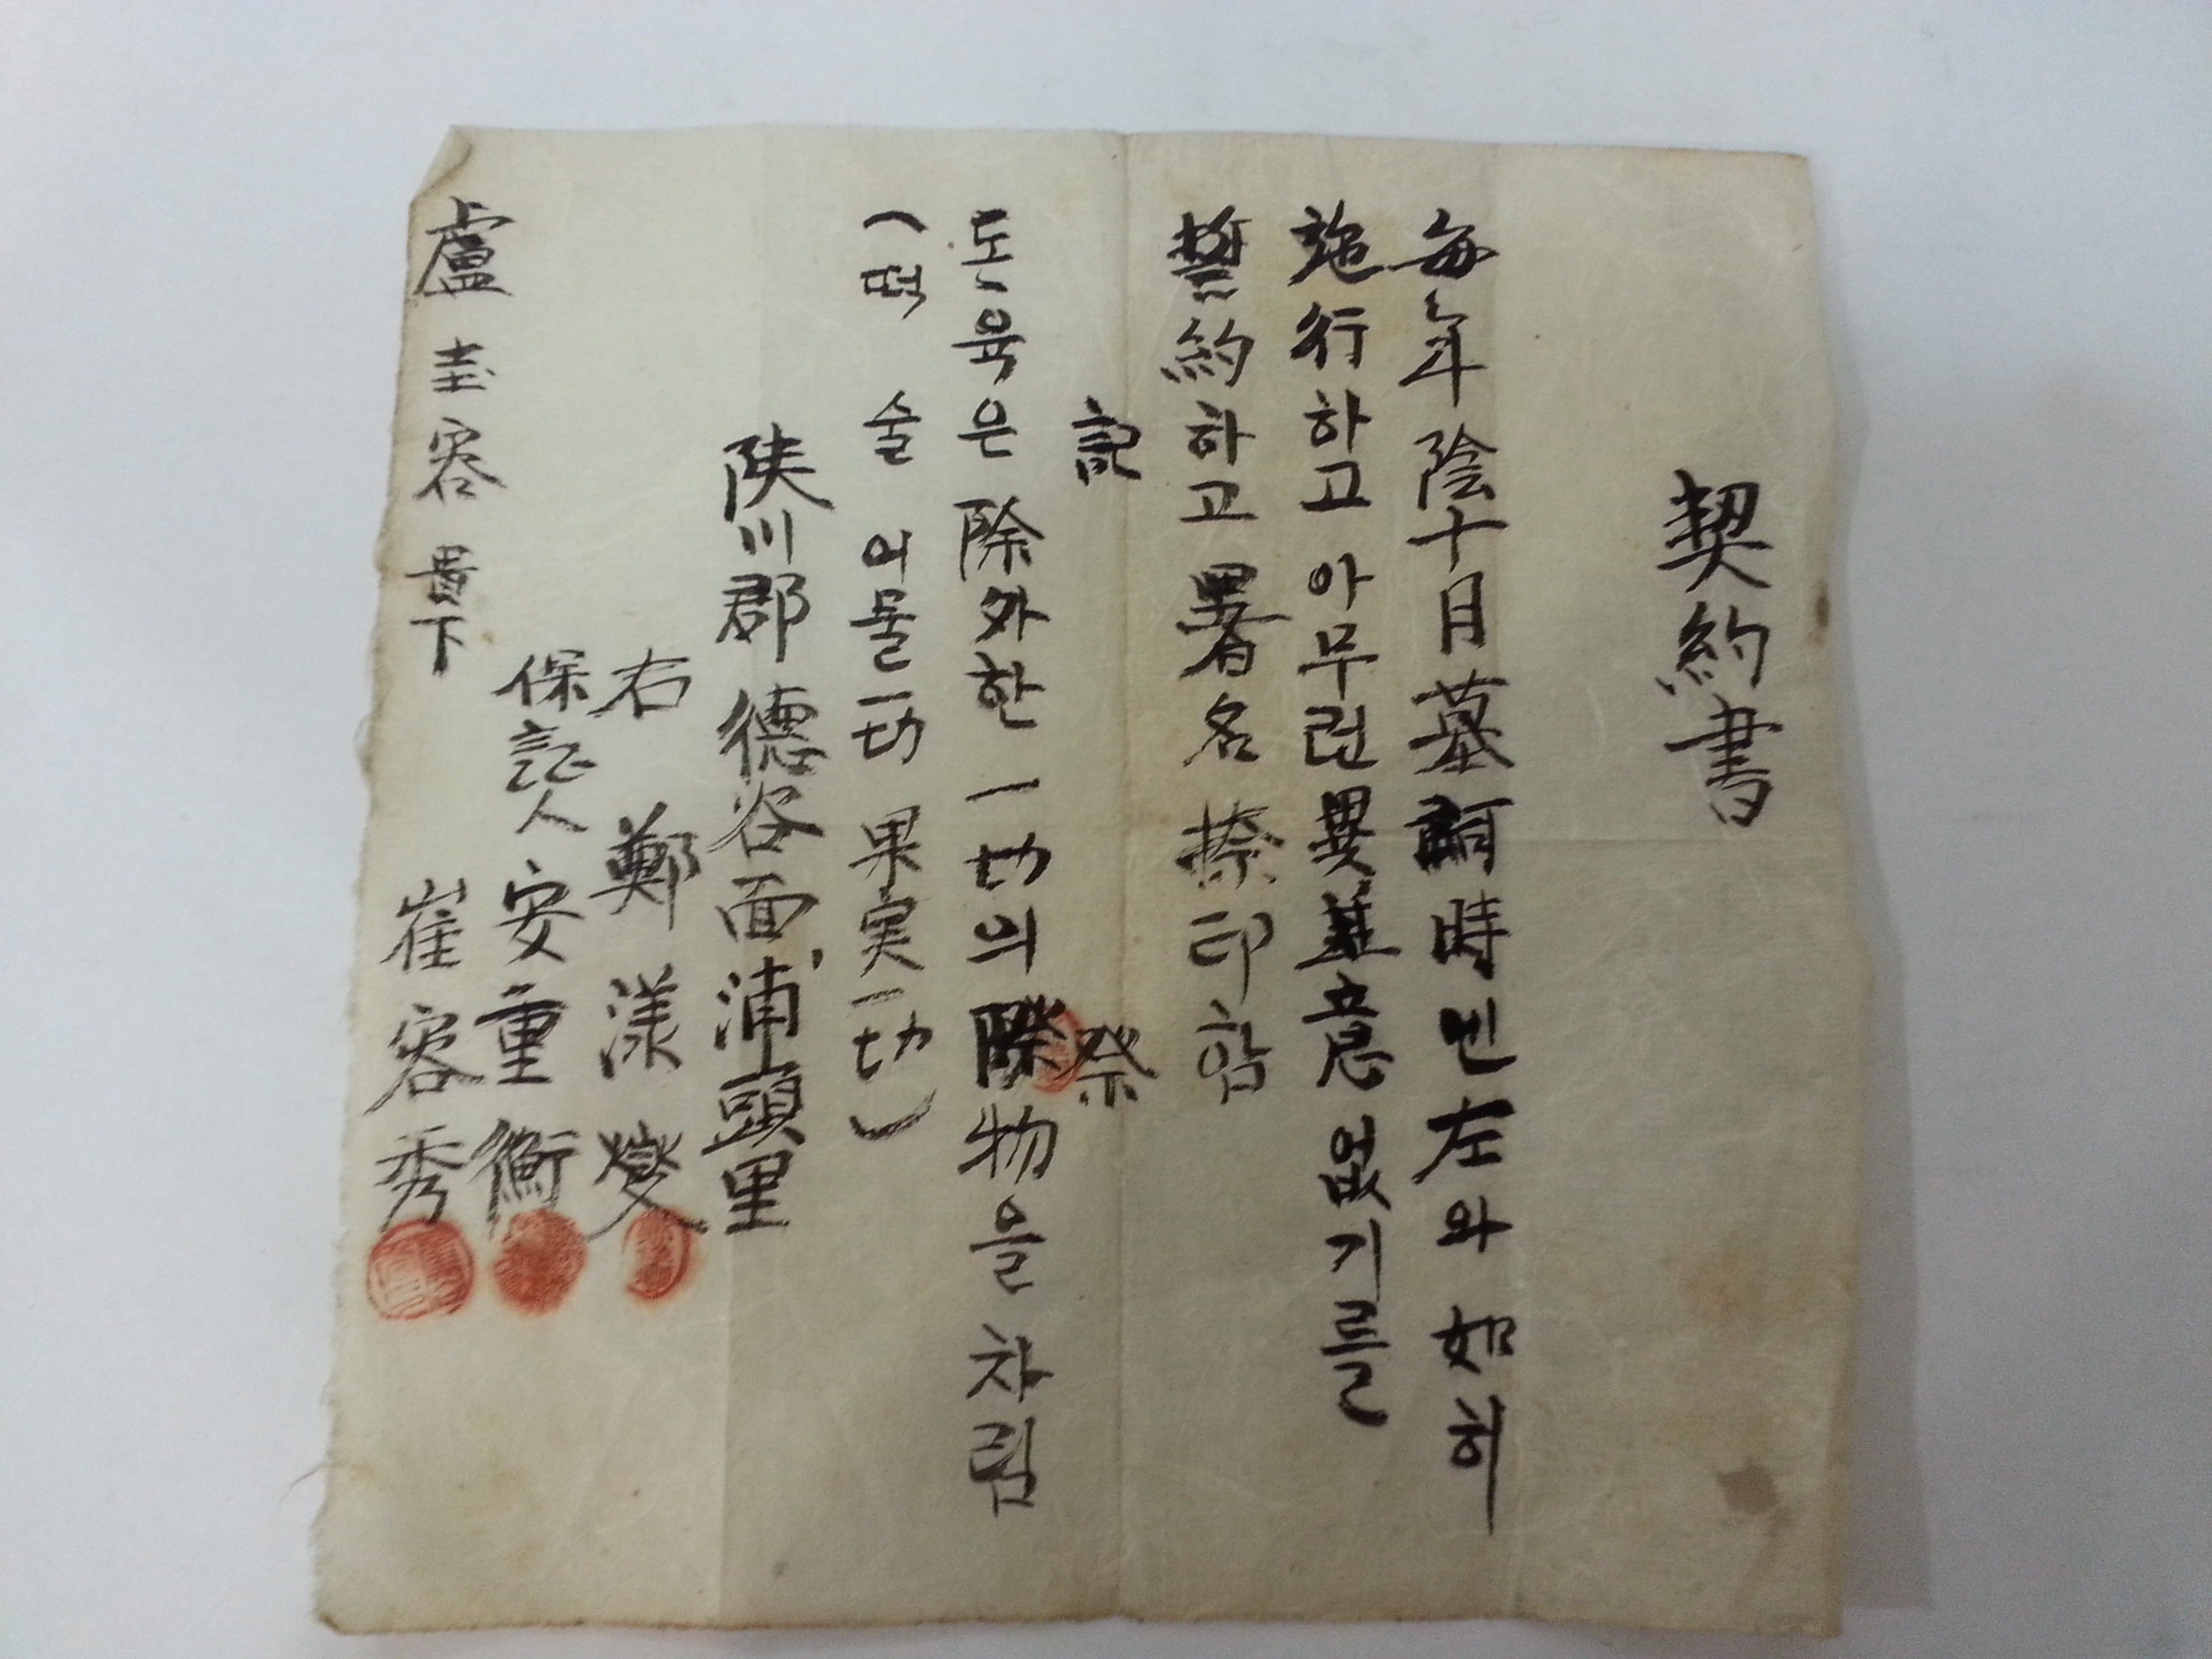 契約書
每年 陰十月 墓祠時엔 左와 如히
施行하고 아무런 異議 없기를
誓約하고 署名 捺印함
記
돈육은 除外한 一切의 祭物을 차림
(떡 술 어물一切 果実一切)
陜川郡 德谷面 浦頭里
右 鄭漾燮
保証人 安重衡
崔容秀
盧圭容 貴下